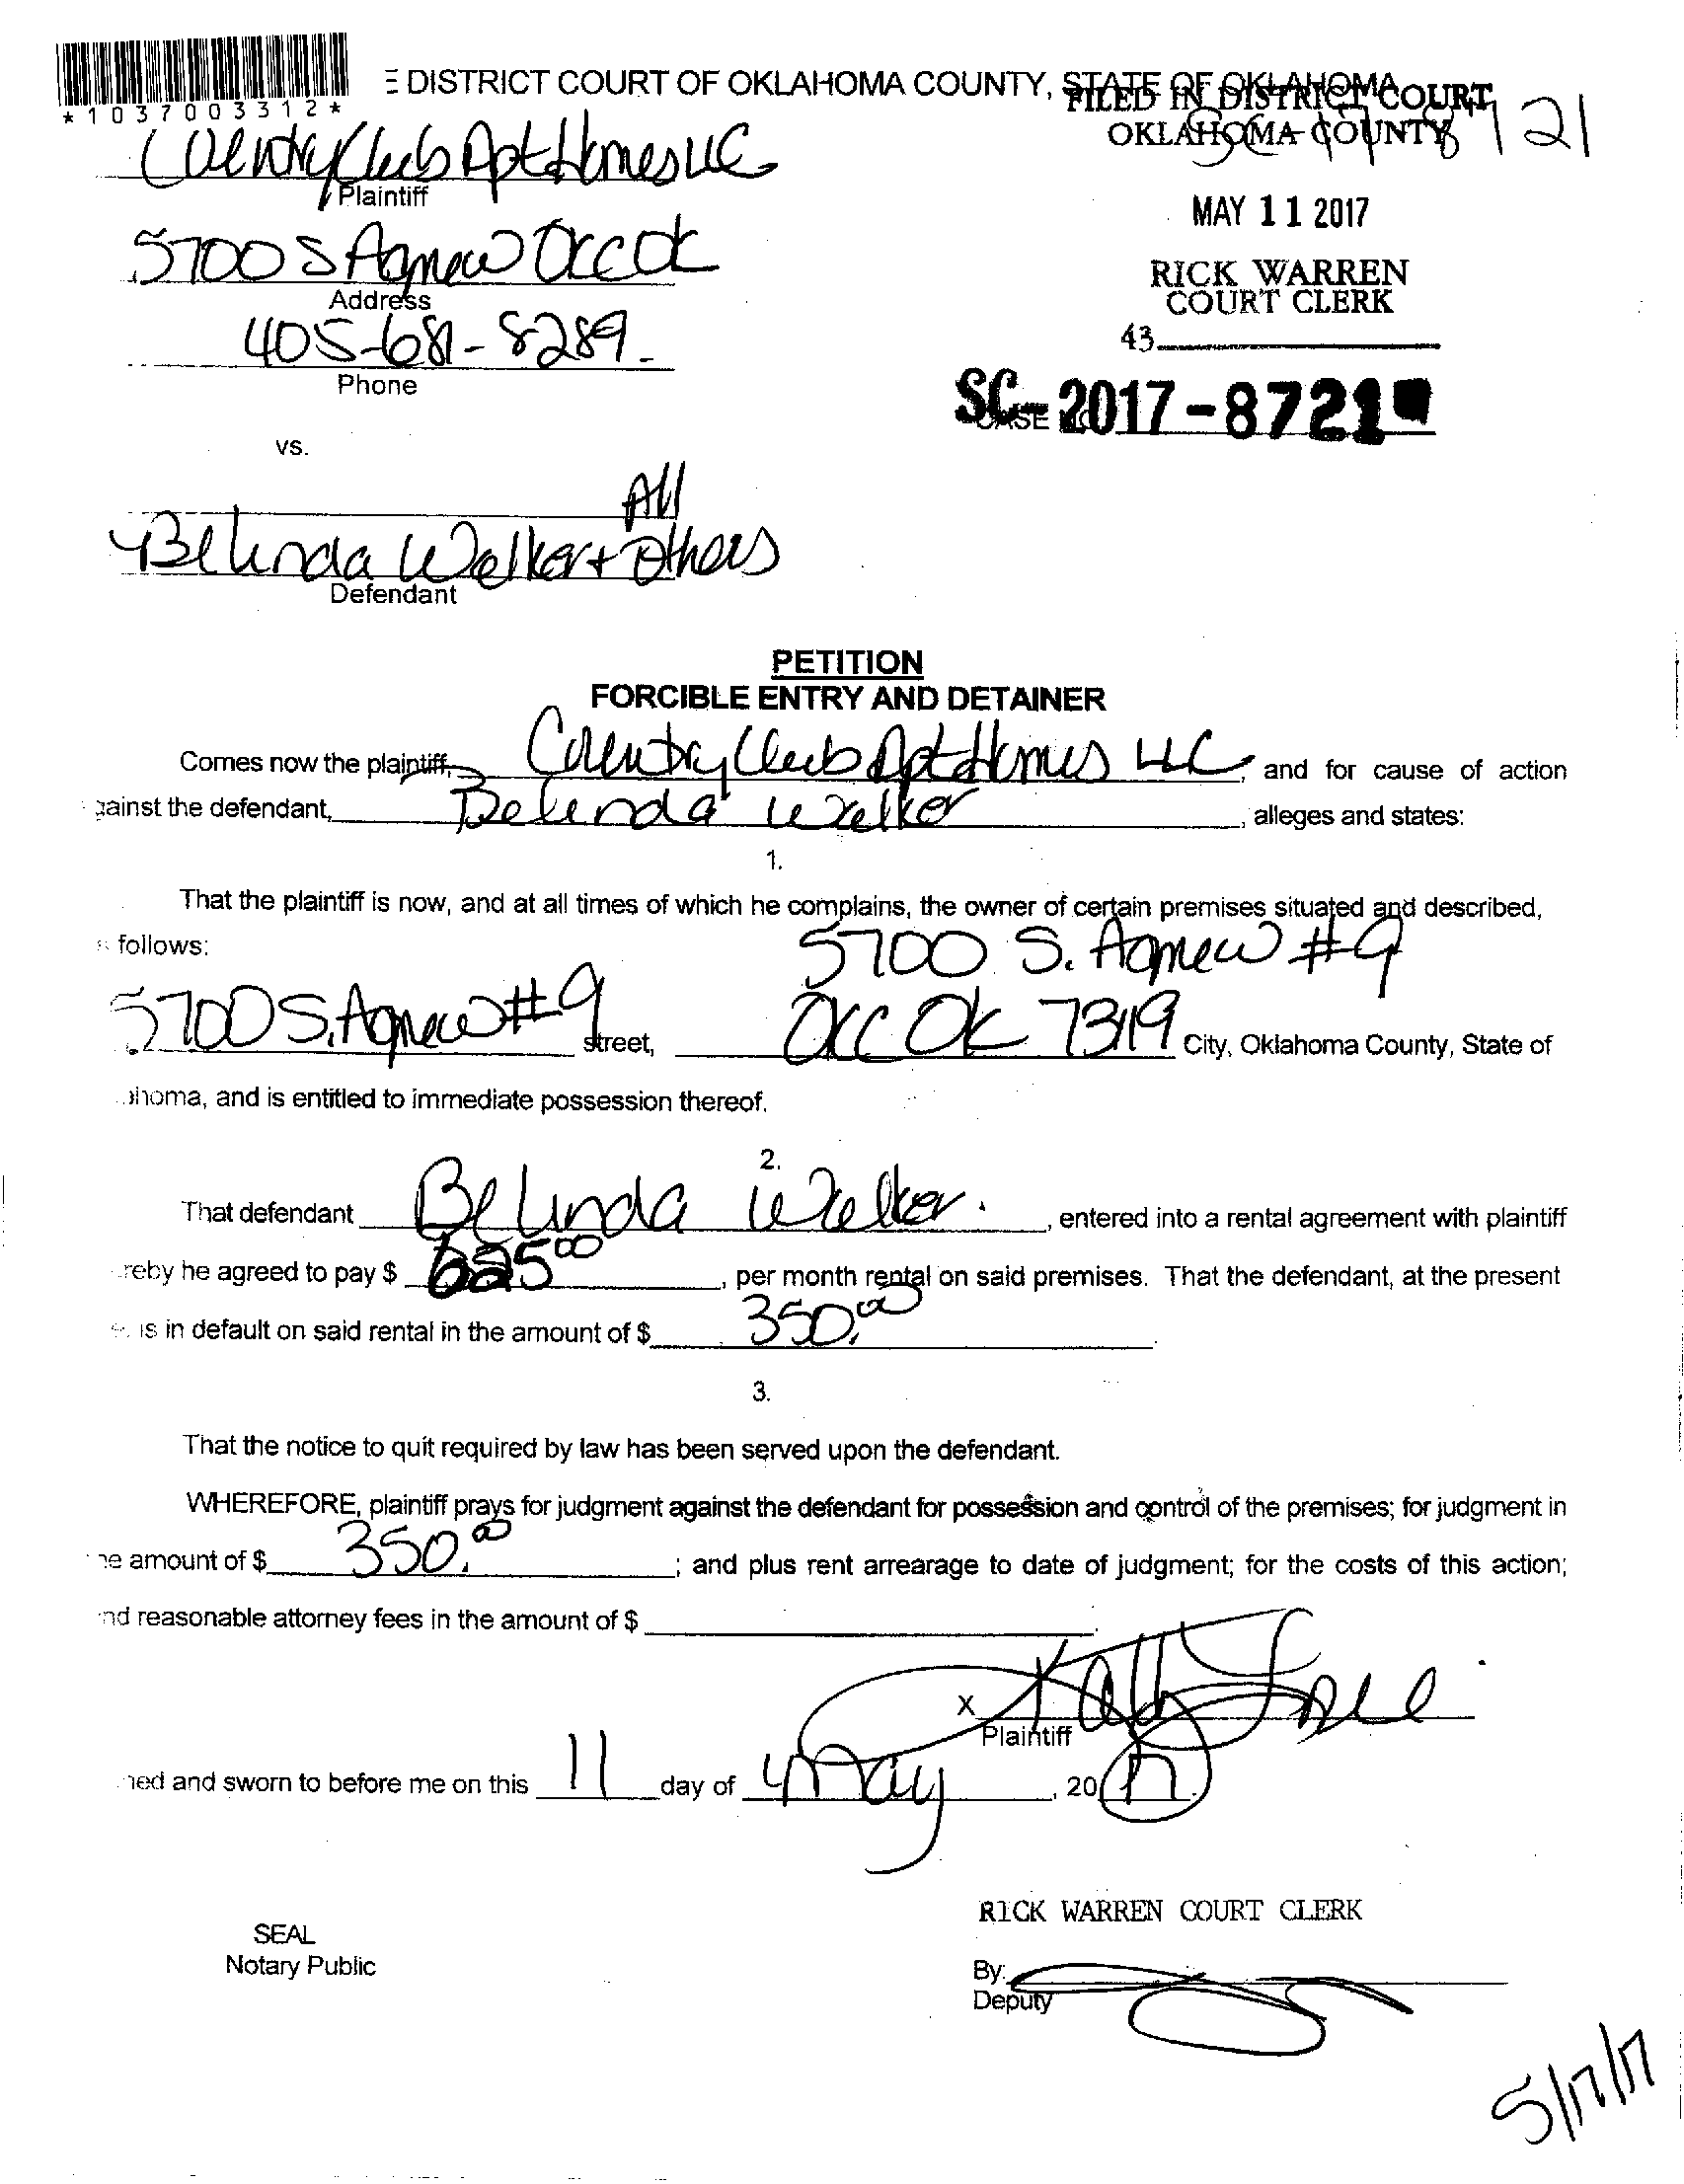 *1037003312*
E DISTRICT COURT OF OKLAHOMA COUNTY, STATE OF OKLAHOMA
FILED IN DISTRICT COURT
OKLAHOMA COUNTY
SC 17 8721
Country Club Apt Homes LLC
Plaintiff
MAY 11 2017
5700 S Agnew OKC OK
Address
RICK WARREN
COURT CLERK
405-681-8289
Phone
43
SC-2017-8721
vs.
All
Belinda Walker + Others
Defendant
PETITION
FORCIBLE ENTRY AND DETAINER
Comes now the plaintiff, Country Club Apt Homes LLC, and for cause of action
gainst the defendant, Belinda Walker, alleges and states:
1.
That the plaintiff is now, and at all times of which he complains, the owner of certain premises situated and described,
s follows:
5700 S. Agnew #9
5700 S. Agnew #9 street, OKC OK 73119 City, Oklahoma County, State of
ahoma, and is entitled to immediate possession thereof.
2.
That defendant Belinda Walker, entered into a rental agreement with plaintiff
reby he agreed to pay $ 625 00, per month rental on said premises. That the defendant, at the present
e, is in default on said rental in the amount of $ 350.00.
3.
That the notice to quit required by law has been served upon the defendant.
WHEREFORE, plaintiff prays for judgment against the defendant for possession and control of the premises; for judgment in
he amount of $ 350.00; and plus rent arrearage to date of judgment; for the costs of this action;
nd reasonable attorney fees in the amount of $
X
Plaintiff
ned and sworn to before me on this 11 day of May, 2017.
RICK WARREN COURT CLERK
SEAL
Notary Public
By:
Deputy
5/17/17